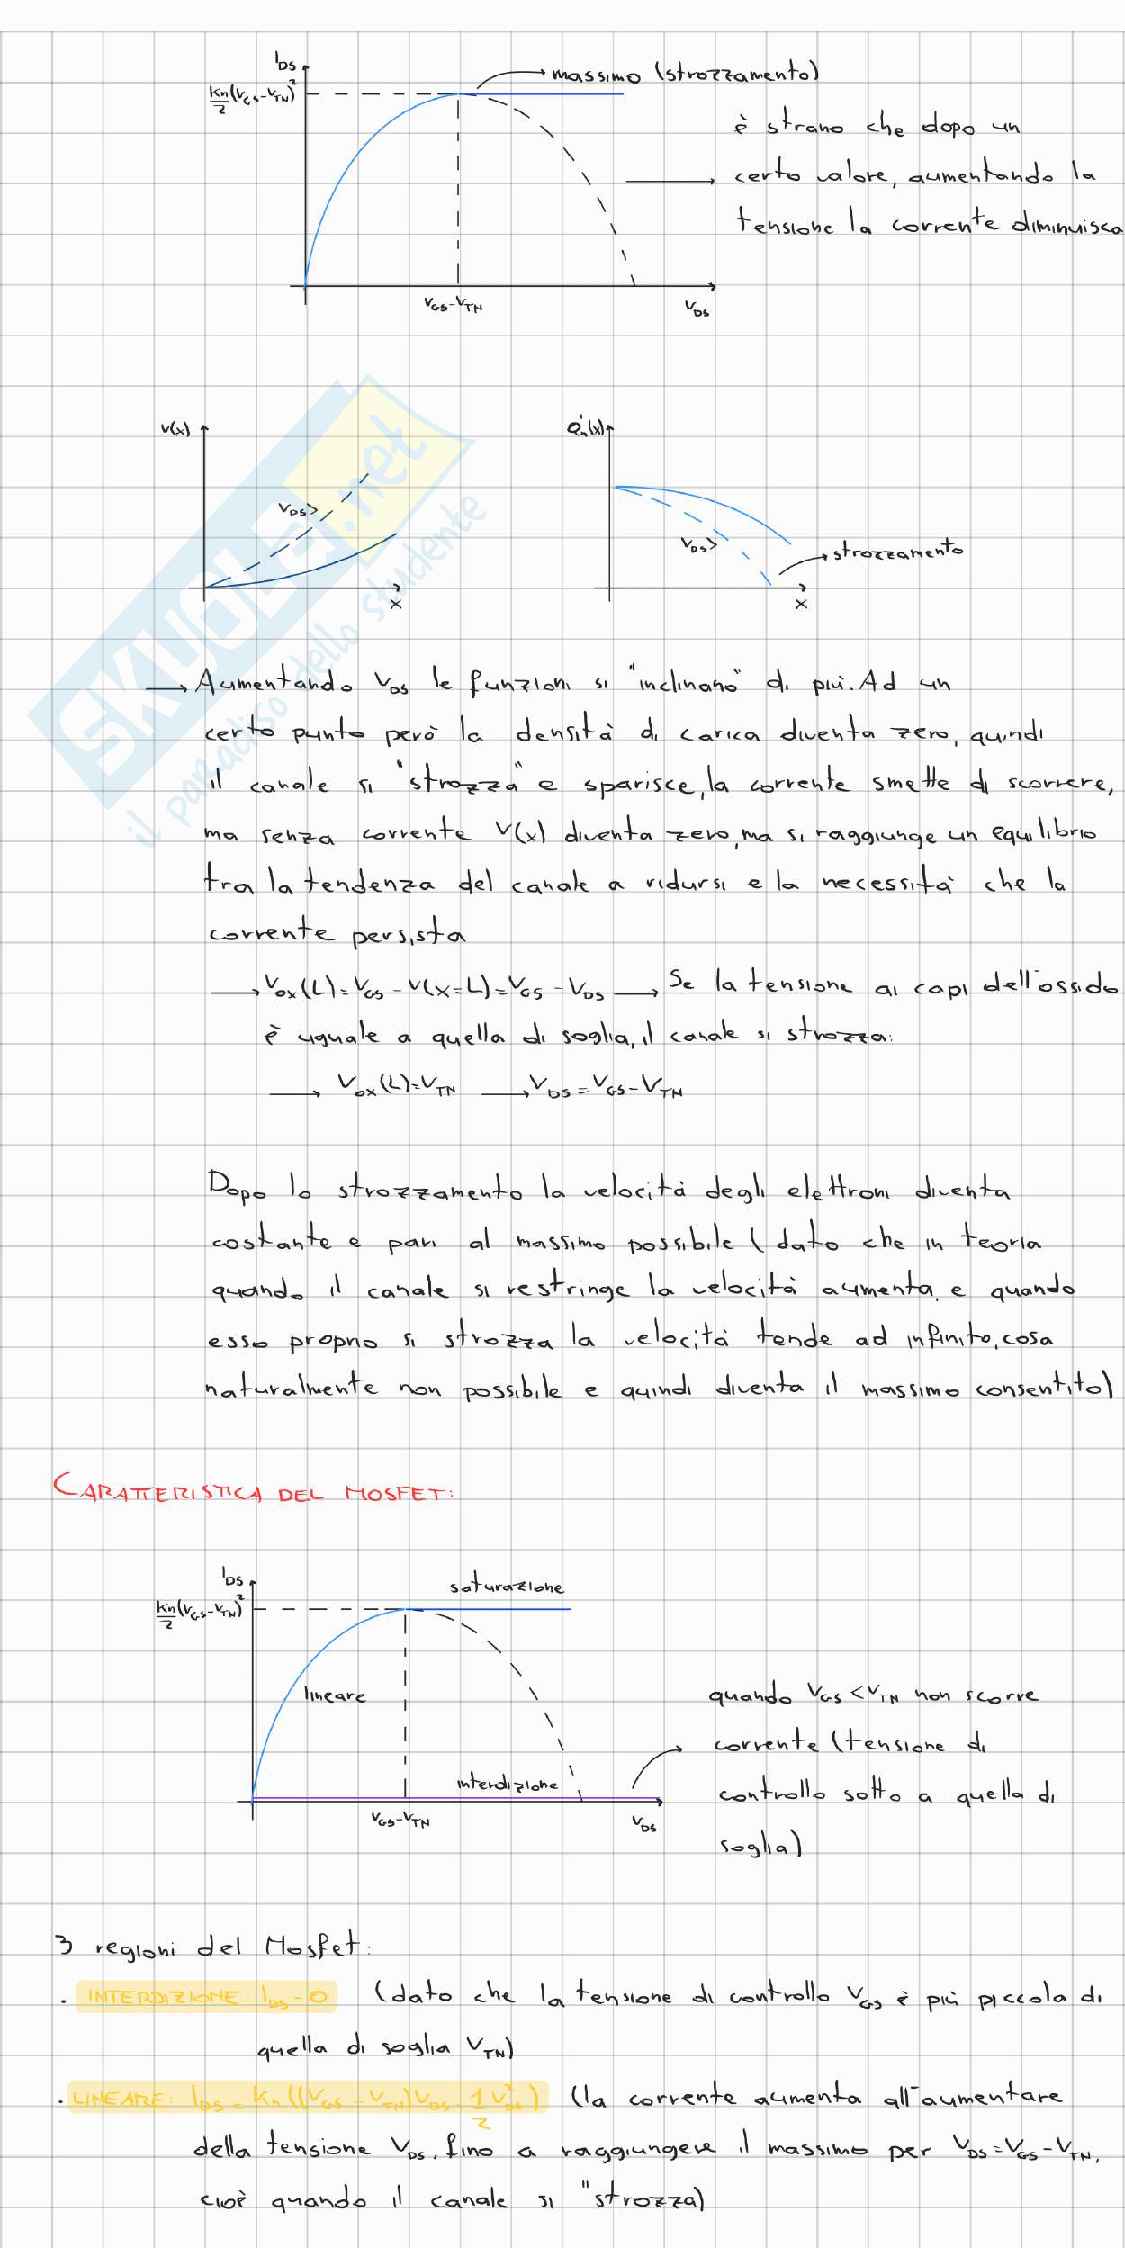 I_DS
massimo (strozzamento)
kn/2 (V_GS-V_TN)²
è strano che dopo un
certo valore, aumentando la
tensione la corrente diminuisca
V_GS-V_TN
V_DS
V(x)
Q'n(x)
V_DS>
V_DS>
strozzamento
x
x
SKUOLA.net
il paradiso dello studente
→ Aumentando V_DS le funzioni si "inclinano" di più. Ad un
certo punto però la densità di carica diventa zero, quindi
il canale si "strozza" e sparisce, la corrente smette di scorrere,
ma senza corrente V(x) diventa zero, ma si raggiunge un equilibrio
tra la tendenza del canale a ridursi e la necessità che la
corrente persista
→ V_ox(L)=V_GS-V(x=L)=V_GS-V_DS → Se la tensione ai capi dell'ossido
è uguale a quella di soglia, il canale si strozza:
→ V_ox(L)=V_TN → V_DS=V_GS-V_TN
Dopo lo strozzamento la velocità degli elettroni diventa
costante e pari al massimo possibile (dato che in teoria
quando il canale si restringe la velocità aumenta, e quando
esso proprio si strozza la velocità tende ad infinito, cosa
naturalmente non possibile e quindi diventa il massimo consentito)
CARATTERISTICA DEL MOSFET:
I_DS
saturazione
kn/2 (V_GS-V_TN)²
lineare
quando V_GS<V_TN non scorre
corrente (tensione di
interdizione
controllo sotto a quella di
V_GS-V_TN
V_DS
soglia)
3 regioni del Mosfet:
. INTERDIZIONE I_DS=0 (dato che la tensione di controllo V_GS è più piccola di
quella di soglia V_TN)
. LINEARE: I_DS=kn((V_GS-V_TN)V_DS-1/2 V_DS²) (la corrente aumenta all'aumentare
della tensione V_DS, fino a raggiungere il massimo per V_DS=V_GS-V_TN,
cioè quando il canale si "strozza)